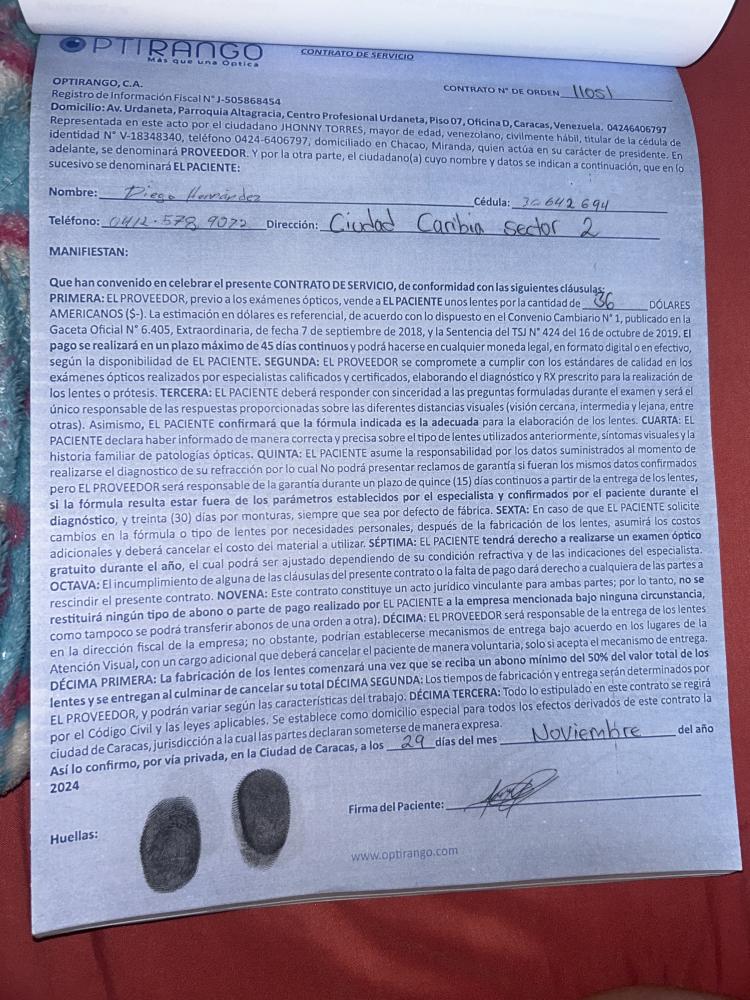 OPTIRANGO
Más que una Óptica
CONTRATO DE SERVICIO
OPTIRANGO, C.A.
CONTRATO N° DE ORDEN 11051
Registro de Información Fiscal N° J-505868454
Domicilio: Av. Urdaneta, Parroquia Altagracia, Centro Profesional Urdaneta, Piso 07, Oficina D, Caracas, Venezuela. 04246406797
Representada en este acto por el ciudadano JHONNY TORRES, mayor de edad, venezolano, civilmente hábil, titular de la cédula de
identidad N° V-18348340, teléfono 0424-6406797, domiciliado en Chacao, Miranda, quien actúa en su carácter de presidente. En
adelante, se denominará PROVEEDOR. Y por la otra parte, el ciudadano(a) cuyo nombre y datos se indican a continuación, que en lo
sucesivo se denominará EL PACIENTE:
Nombre: Diego Hernández Cédula: 30642694
Teléfono: 0412-578 9072 Dirección: Ciudad Caribia sector 2
MANIFIESTAN:
Que han convenido en celebrar el presente CONTRATO DE SERVICIO, de conformidad con las siguientes cláusulas:
PRIMERA: EL PROVEEDOR, previo a los exámenes ópticos, vende a EL PACIENTE unos lentes por la cantidad de 36 DÓLARES
AMERICANOS ($-). La estimación en dólares es referencial, de acuerdo con lo dispuesto en el Convenio Cambiario N° 1, publicado en la
Gaceta Oficial N° 6.405, Extraordinaria, de fecha 7 de septiembre de 2018, y la Sentencia del TSJ N° 424 del 16 de octubre de 2019. El
pago se realizará en un plazo máximo de 45 días continuos y podrá hacerse en cualquier moneda legal, en formato digital o en efectivo,
según la disponibilidad de EL PACIENTE. SEGUNDA: EL PROVEEDOR se compromete a cumplir con los estándares de calidad en los
exámenes ópticos realizados por especialistas calificados y certificados, elaborando el diagnóstico y RX prescrito para la realización de
los lentes o prótesis. TERCERA: EL PACIENTE deberá responder con sinceridad a las preguntas formuladas durante el examen y será el
único responsable de las respuestas proporcionadas sobre las diferentes distancias visuales (visión cercana, intermedia y lejana, entre
otras). Asimismo, EL PACIENTE confirmará que la fórmula indicada es la adecuada para la elaboración de los lentes. CUARTA: EL
PACIENTE declara haber informado de manera correcta y precisa sobre el tipo de lentes utilizados anteriormente, síntomas visuales y la
historia familiar de patologías ópticas. QUINTA: EL PACIENTE asume la responsabilidad por los datos suministrados al momento de
realizarse el diagnostico de su refracción por lo cual No podrá presentar reclamos de garantía si fueran los mismos datos confirmados
pero EL PROVEEDOR será responsable de la garantía durante un plazo de quince (15) días continuos a partir de la entrega de los lentes,
si la fórmula resulta estar fuera de los parámetros establecidos por el especialista y confirmados por el paciente durante el
diagnóstico, y treinta (30) días por monturas, siempre que sea por defecto de fábrica. SEXTA: En caso de que EL PACIENTE solicite
cambios en la fórmula o tipo de lentes por necesidades personales, después de la fabricación de los lentes, asumirá los costos
adicionales y deberá cancelar el costo del material a utilizar. SÉPTIMA: EL PACIENTE tendrá derecho a realizarse un examen óptico
gratuito durante el año, el cual podrá ser ajustado dependiendo de su condición refractiva y de las indicaciones del especialista.
OCTAVA: El incumplimiento de alguna de las cláusulas del presente contrato o la falta de pago dará derecho a cualquiera de las partes a
rescindir el presente contrato. NOVENA: Este contrato constituye un acto jurídico vinculante para ambas partes; por lo tanto, no se
restituirá ningún tipo de abono o parte de pago realizado por EL PACIENTE a la empresa mencionada bajo ninguna circunstancia,
como tampoco se podrá transferir abonos de una orden a otra). DÉCIMA: EL PROVEEDOR será responsable de la entrega de los lentes
en la dirección fiscal de la empresa; no obstante, podrían establecerse mecanismos de entrega bajo acuerdo en los lugares de la
Atención Visual, con un cargo adicional que deberá cancelar el paciente de manera voluntaria, solo si acepta el mecanismo de entrega.
DÉCIMA PRIMERA: La fabricación de los lentes comenzará una vez que se reciba un abono mínimo del 50% del valor total de los
lentes y se entregan al culminar de cancelar su total DÉCIMA SEGUNDA: Los tiempos de fabricación y entrega serán determinados por
EL PROVEEDOR, y podrán variar según las características del trabajo. DÉCIMA TERCERA: Todo lo estipulado en este contrato se regirá
por el Código Civil y las leyes aplicables. Se establece como domicilio especial para todos los efectos derivados de este contrato la
ciudad de Caracas, jurisdicción a la cual las partes declaran someterse de manera expresa.
Así lo confirmo, por vía privada, en la Ciudad de Caracas, a los 29 días del mes Noviembre del año
2024
Firma del Paciente:
Huellas:
www.optirango.com